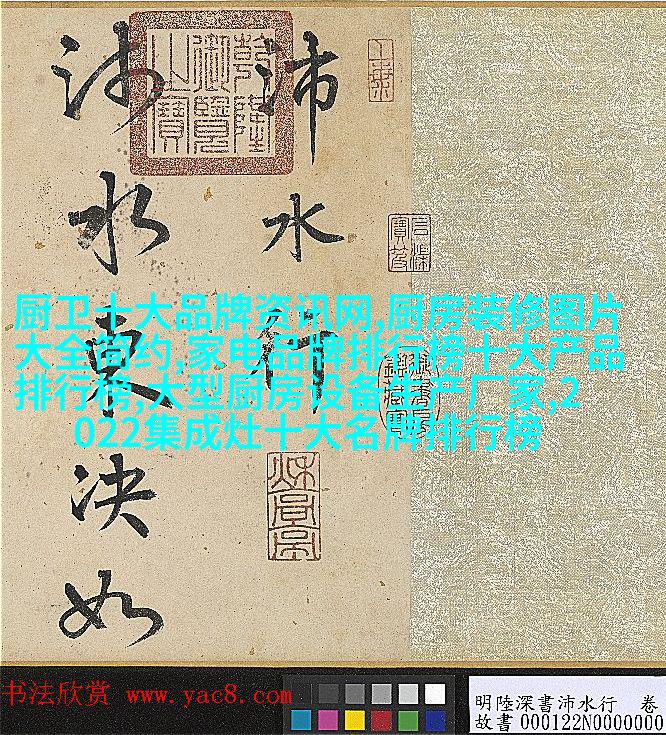 沛水行
沛水東決如
乾隆
御覽
之寶
石渠
寶笈
厨卫十大品牌资讯网,厨房装修图片
大全简约,家电品牌排行榜十大产品
排行榜,大型厨房设备生产厂家,2
022集成灶十大名牌排行榜
书法欣赏 www.yac8.com
明陸深書沛水行 卷
故書000122N0000000